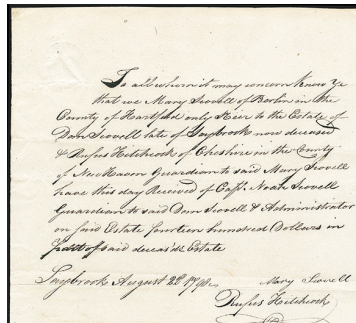 To all whom it may concern Know Ye
that we Mary Scovell of Berlin in the
County of Hartford only Heir to the Estate of
Dan Scovell late of Saybrook now deceased
& Rufus Hitchcock of Cheshire in the County
of New Haven Guardian to said Mary Scovell
have this day Received of Capt. Noah Scovell
Guardian to said Dan Scovell & Administrator
on said Estate fourteen hundred Dollars in
part of said deceas'ds Estate
Saybrook August 22d
Mary Scovell
Rufus Hitchcock